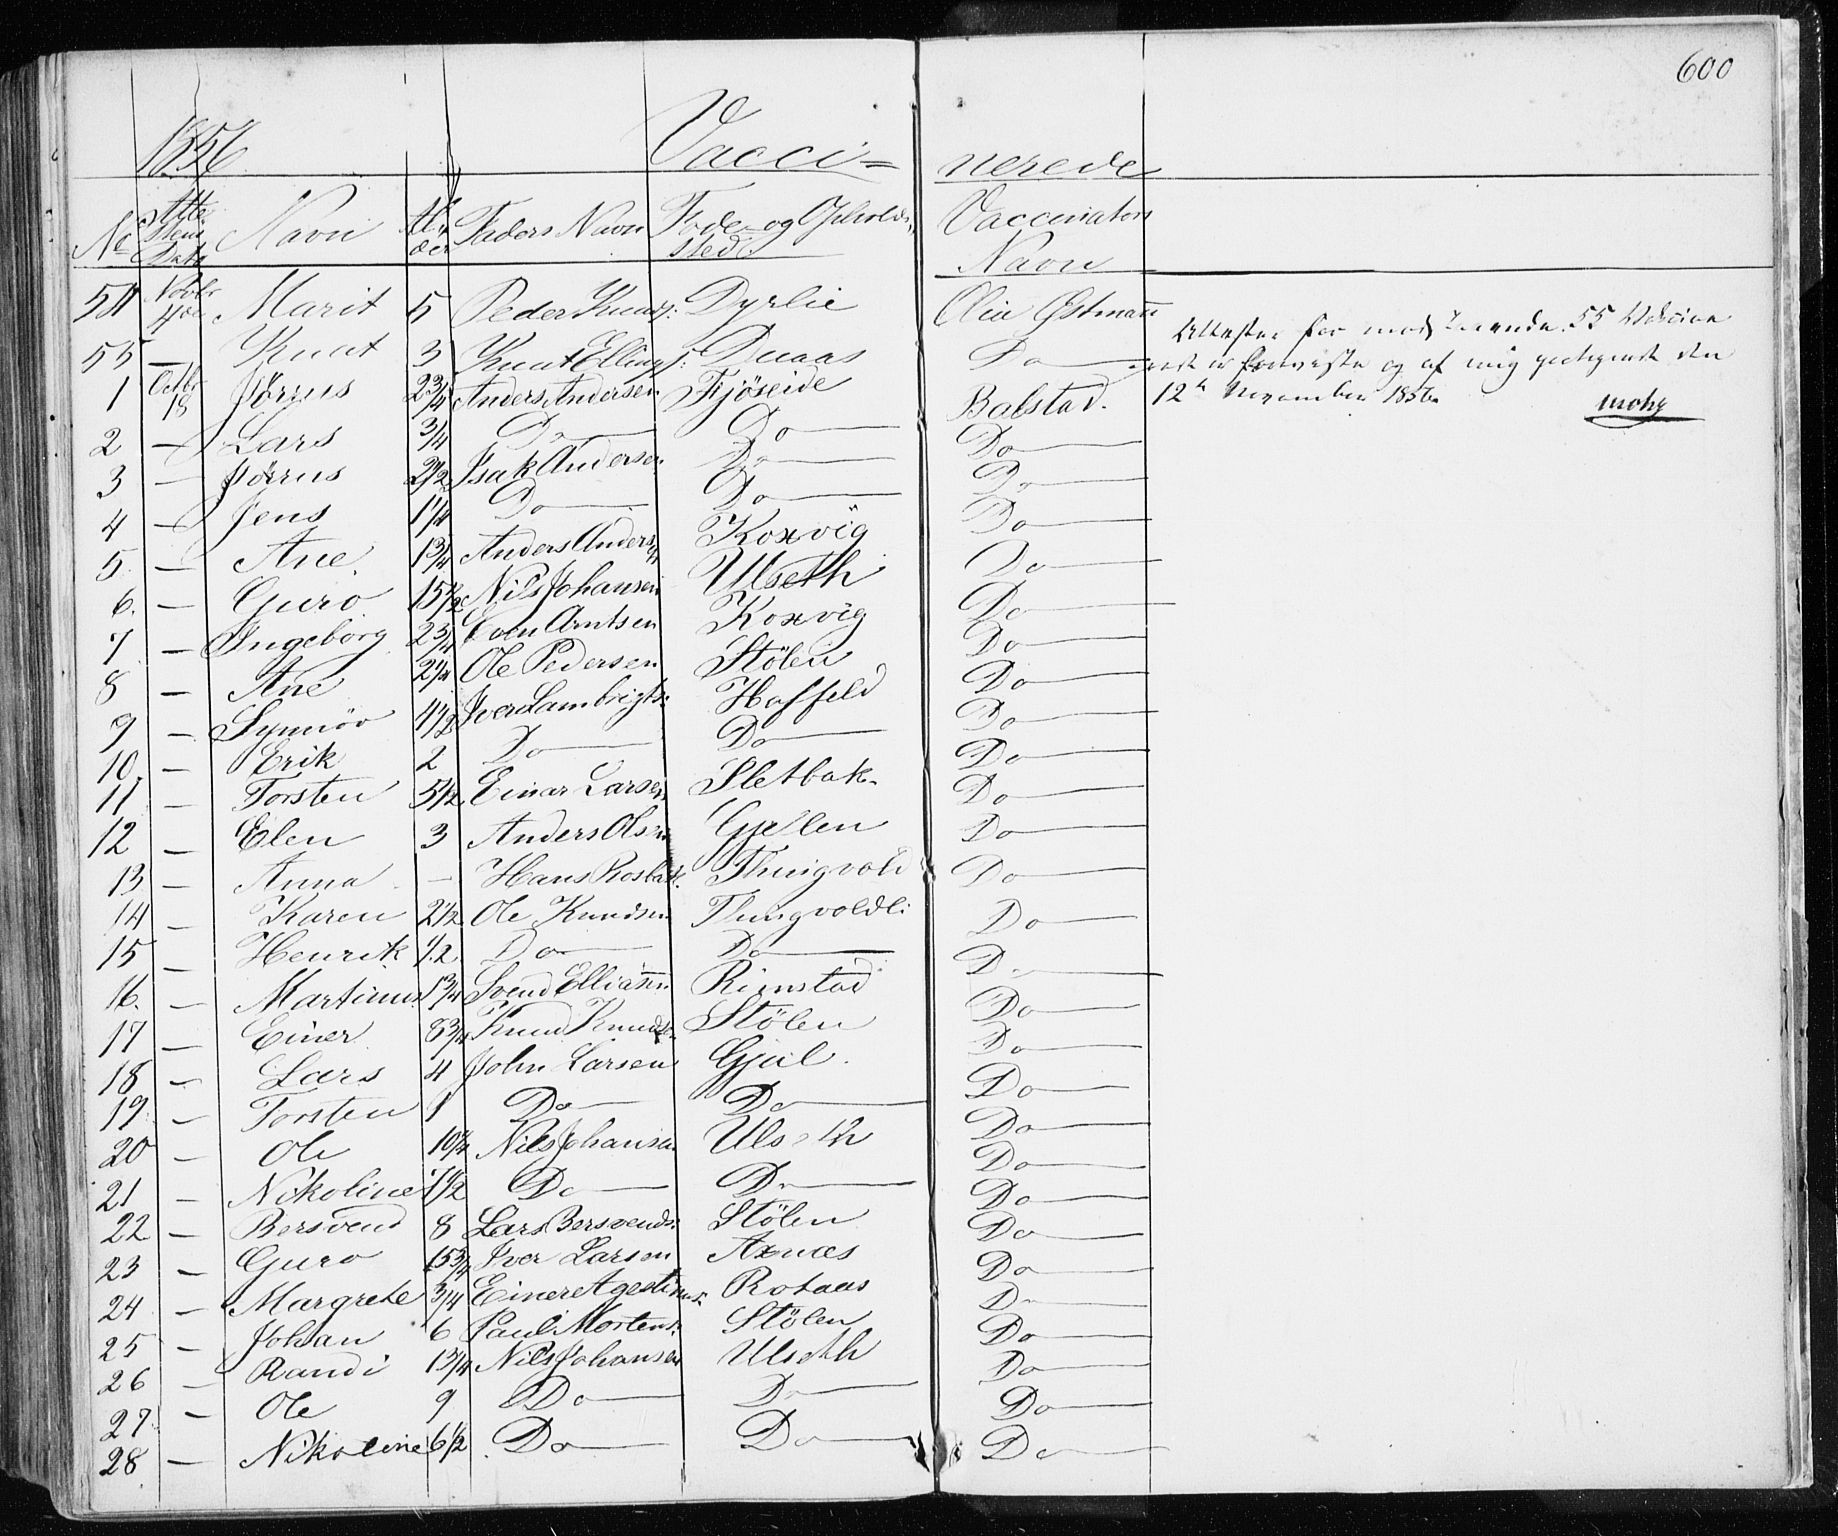 600
1856 Vacci= nerede
No Attestens Dato Navn Alder Faders Navn Føde- og Opholdssted Vaccinators Navn
54 Novbr 4de Marit 5 Peder Knuds: Dyrlie Olia Østmann
55 — Knut 3 Knut Ellings: Duaas Do
1 Octbr 18 Jørgus 2 3/4 Anders Andersen Fjöseide Balstad.
2 — Lars 3/4 Do Do Do
3 — Jörrus 2 1/2 Isak Andersen Do Do
4 — Jens 1 1/4 Do Do Do
5 — Ane 1 3/4 Anders Andersen Koxvig Do
6. — Guro 15 1/2 Nils Johansen Ulseth Do
7 — Ingebörg 2 3/4 Even Arntsen Koxvig Do
8 — Ane 2 1/4 Ole Pedersen Stölen Do
9 — Synnöv 4 1/2 Iver Lambrigts: Haffeld Do
10. — Erik 2 Do Do Do
11 — Torsten 5 1/2 Einar Larsen Sletbak Do
12 — Elen 3 Anders Olsen Gjelen Do
13 — Anna — Hans Rosbak. Thingvold Do
14 — Karen 2 1/2 Ole Knudsen Thingvoldli Do
15 — Henrik 1/2 Do Do Do
16. — Martinus 1 3/4 Svend Elliasen Rimstad Do
17 — Einer 8 3/4 Knud Knudsen Stölen Do
18 — Lars 4 John Larsen Gjul. Do
19 — Torsten 1 Do Do Do
20 — Ole 10 1/2 Nils Johansen Ulseth Do
21 — Nikoline 7 1/2 Do Do Do
22 — Bersvend 8 Lars Bersvends: Stölen Do
23 — Guro 15 3/4 Iver Larsen Axnæs Do
24 — Margrete 3/4 Einer Agestinus: Rotaas Do
25 — Johan 6 Paul Mortens: Stölen Do
26 — Randi 13/4 Nils Johansen Ulseth Do
27. — Ole 9 Do Do Do
28. — Nikoline 6 1/2 Do Do Do
Attester for modstaaende 55 Vakcine
og af mig den
12te November 1856
Mohr